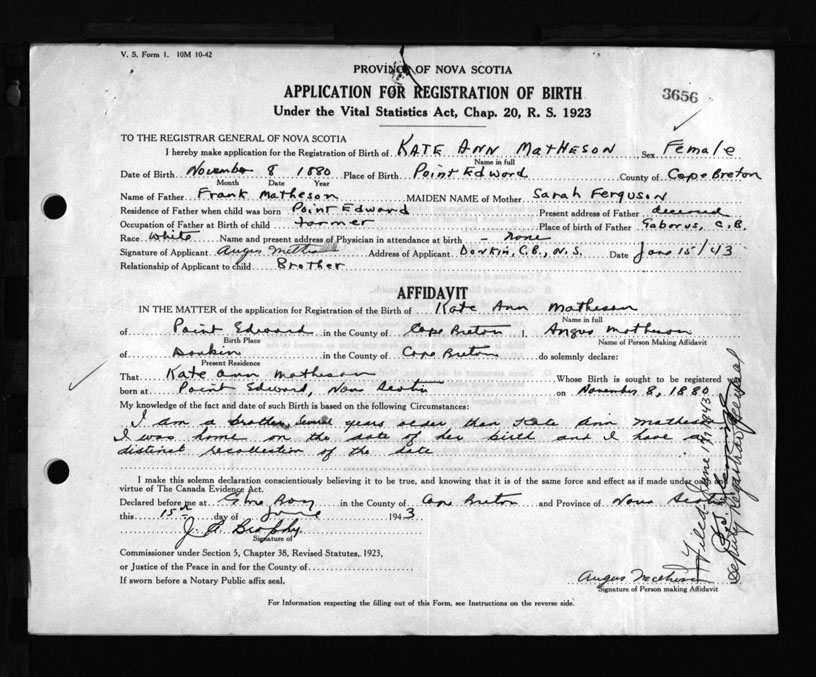 V. S. Form 1. 10M 10-42
PROVINCE OF NOVA SCOTIA
APPLICATION FOR REGISTRATION OF BIRTH
3656
Under the Vital Statistics Act, Chap. 20, R. S. 1923
TO THE REGISTRAR GENERAL OF NOVA SCOTIA
I hereby make application for the Registration of Birth of KATE ANN MATHESON Sex Female
Name in full
Date of Birth November 8 1880 Place of Birth Point Edward County of Cape Breton
Month Date Year
Name of Father Frank Matheson MAIDEN NAME of Mother Sarah Ferguson
Residence of Father when child was born Point Edward Present address of Father deceased
Occupation of Father at Birth of child farmer Place of birth of Father Gabarus, C.B.
Race White Name and present address of Physician in attendance at birth - none
Signature of Applicant Angus Address of Applicant Donkin, C.B., N.S. Date June 15/43
Relationship of Applicant to child Brother
AFFIDAVIT
IN THE MATTER of the application for Registration of the Birth of Kate Ann Matheson
Name in full
of Point Edward in the County of Cape Breton I, Angus Matheson
Birth Place Name of Person Making Affidavit
of Donkin in the County of Cape Breton do solemnly declare:
Present Residence
That Kate Ann Matheson Whose Birth is sought to be registered
born at Point Edward, Nova Scotia on November 8, 1880
My knowledge of the fact and date of such Birth is based on the following Circumstances:
I am a brother, several years older than Kate Ann Matheson
I was home on the date of her birth and I have a
distinct recollection of the date
I make this solemn declaration conscientiously believing it to be true, and knowing that it is of the same force and effect as if made under oath and
virtue of The Canada Evidence Act.
Declared before me at Glace Bay in the County of Cape Breton and Province of Nova Scotia
this 15th day of June 1943
J. A. Brophy
Signature of
Commissioner under Section 5, Chapter 38, Revised Statutes, 1923,
or Justice of the Peace in and for the County of
If sworn before a Notary Public affix seal.
Angus Matheson
Signature of Person making Affidavit
For Information respecting the filling out of this Form, see Instructions on the reverse side.
Filed June 17, 1943
Deputy Registrar General